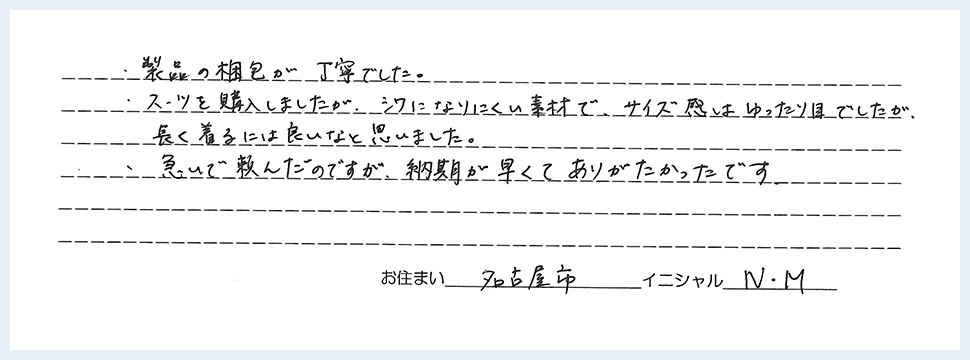 ・製品の梱包が丁寧でした。
・スーツを購入しましたが、シワになりにくい素材で、サイズ感はゆったり目でしたが、
長く着るには良いなと思いました。
・急いで頼んだのですが、納期が早くてありがたかったです
お住まい 名古屋市 イニシャル N・M